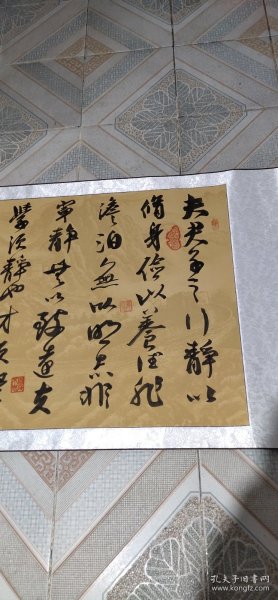 夫君子之行静以
修身俭以养德非
澹泊无以明志非
宁静无以致远夫
学须静也才须学
孔夫子旧书网